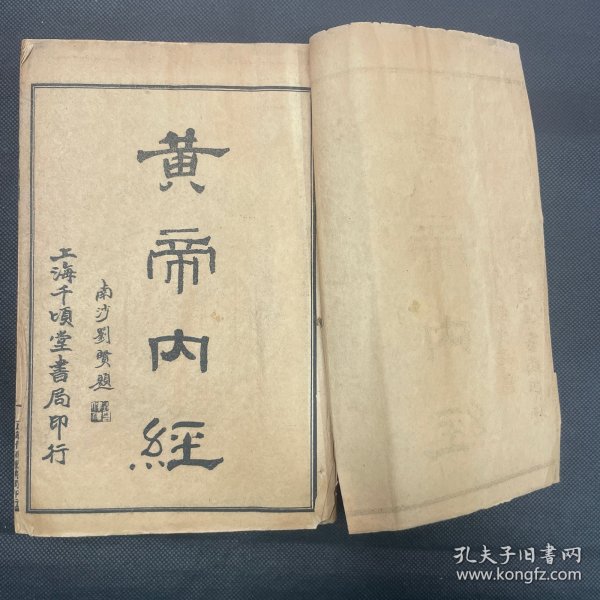 黄帝内經
南沙劉贤題
上海千頃堂書局印行
孔夫子旧书网
www.kongfz.com